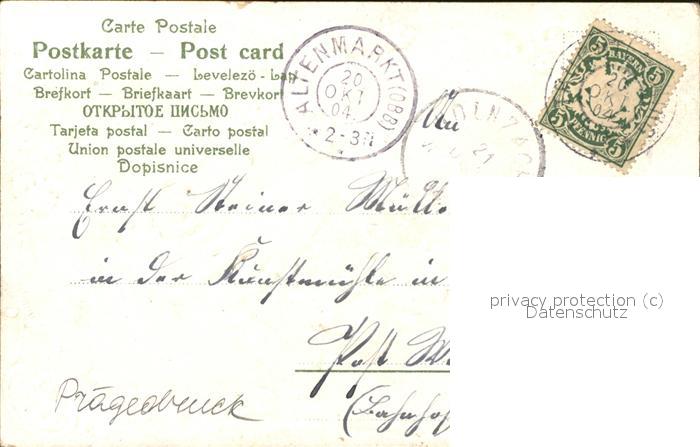 Carte Postale
Postkarte — Post card
Cartolina Postale — Levelezö-Lap
Brefkort — Briefkaart — Brevkort
ОТКРЫТОЕ ПИСЬМО
Tarjeta postal — Carto postal
Union postale universelle
Dopisnice
ALTENMARKT (OBB)
20
OKT
04
2-3N
BAYERN
5 5
5 5
PFENNIG
20
OKT
04
21
An
Ernst Steiner
in der Kunstmühle in
Post
(Bahnhof
Prägedruck
privacy protection (c)
Datenschutz